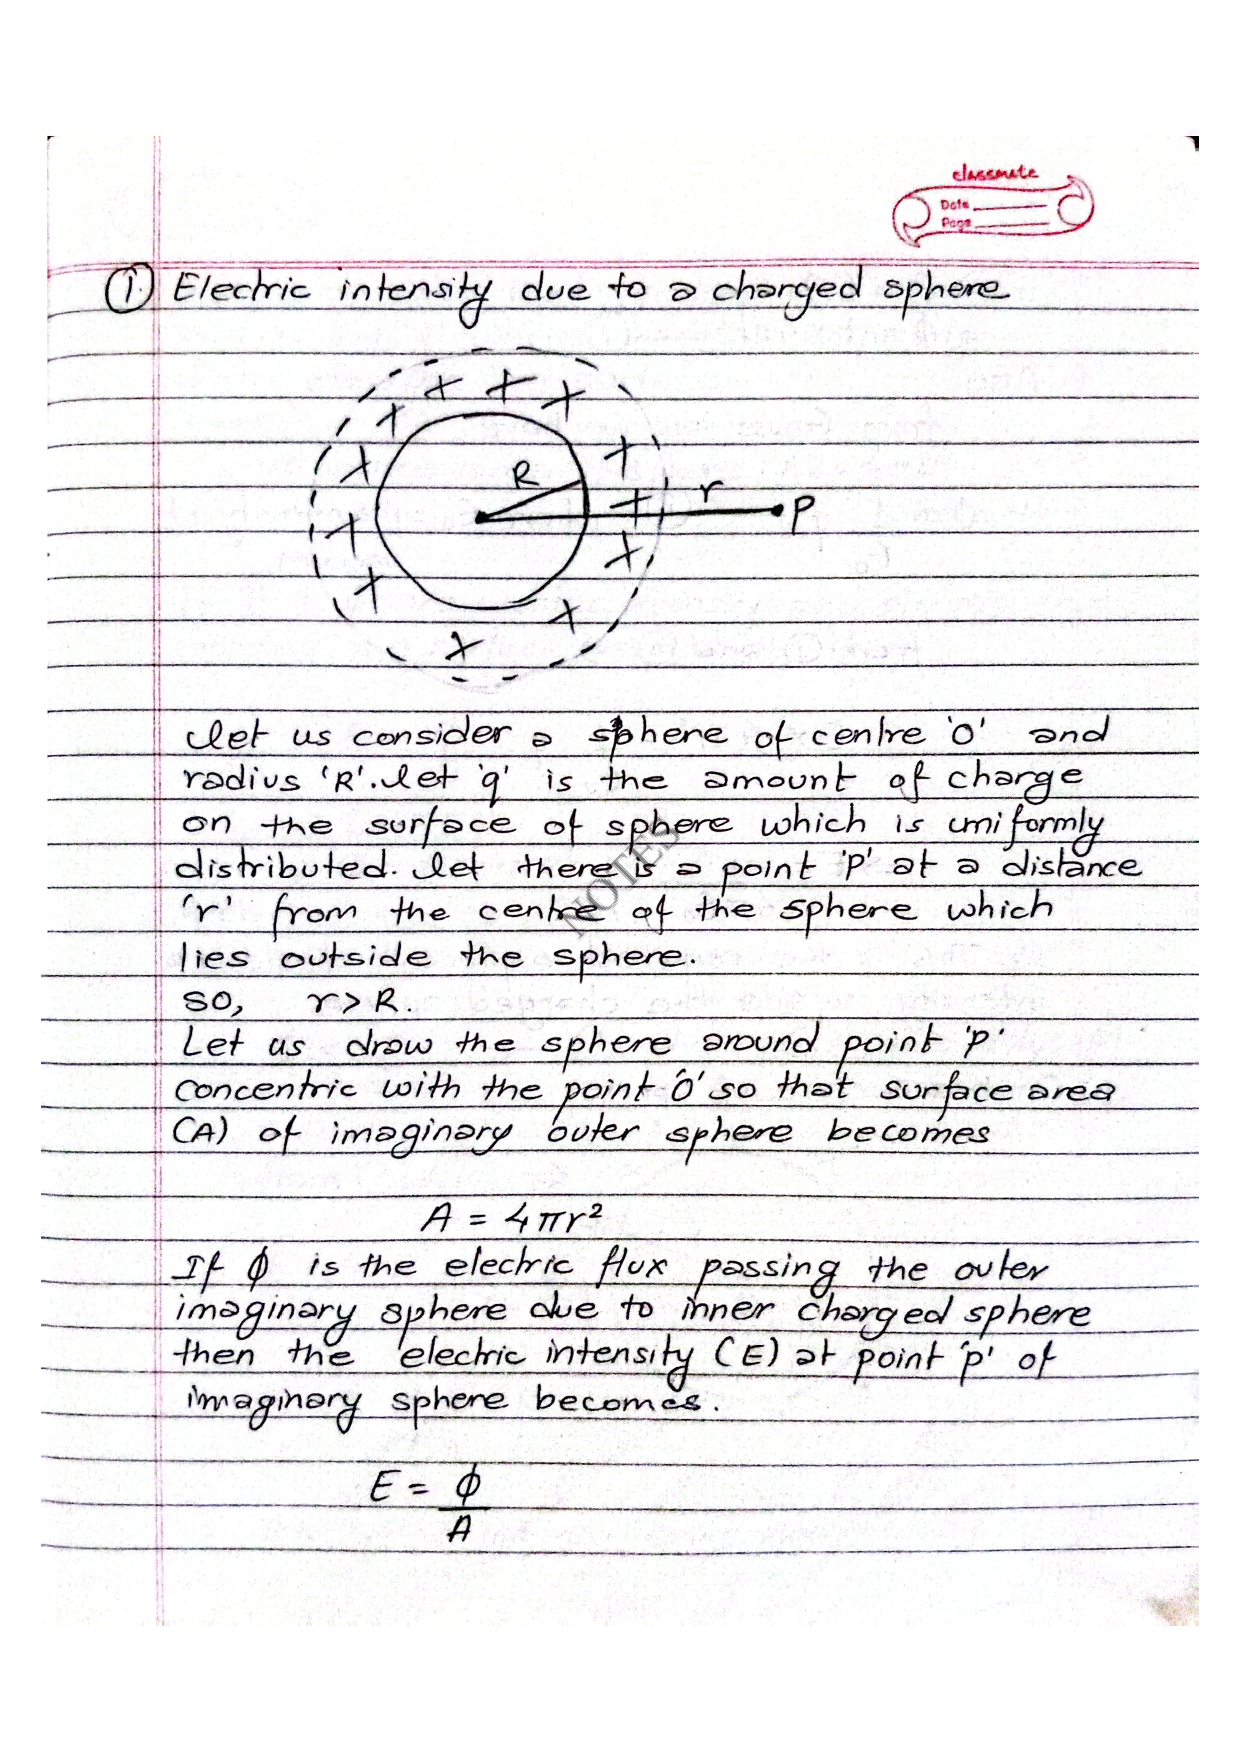 classmate
Date
Page
1. Electric intensity due to a charged sphere
R
r
P
let us consider a sphere of centre 'O' and
radius 'R'. let 'q' is the amount of charge
on the surface of sphere which is uniformly
distributed. let there is a point 'P' at a distance
'r' from the centre of the sphere which
lies outside the sphere.
so, r > R.
Let us draw the sphere around point 'P'
concentric with the point 'O' so that surface area
(A) of imaginary outer sphere becomes
A = 4πr²
If ϕ is the electric flux passing the outer
imaginary sphere due to inner charged sphere
then the electric intensity (E) at point 'p' of
imaginary sphere becomes.
E = ϕ
A
NOTES